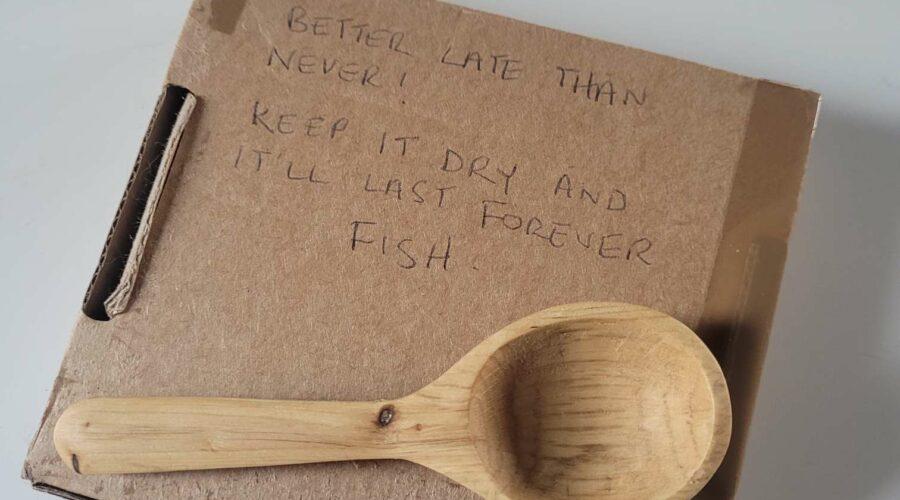 BETTER LATE THAN
NEVER!
KEEP IT DRY AND
IT'LL LAST FOREVER
FISH.